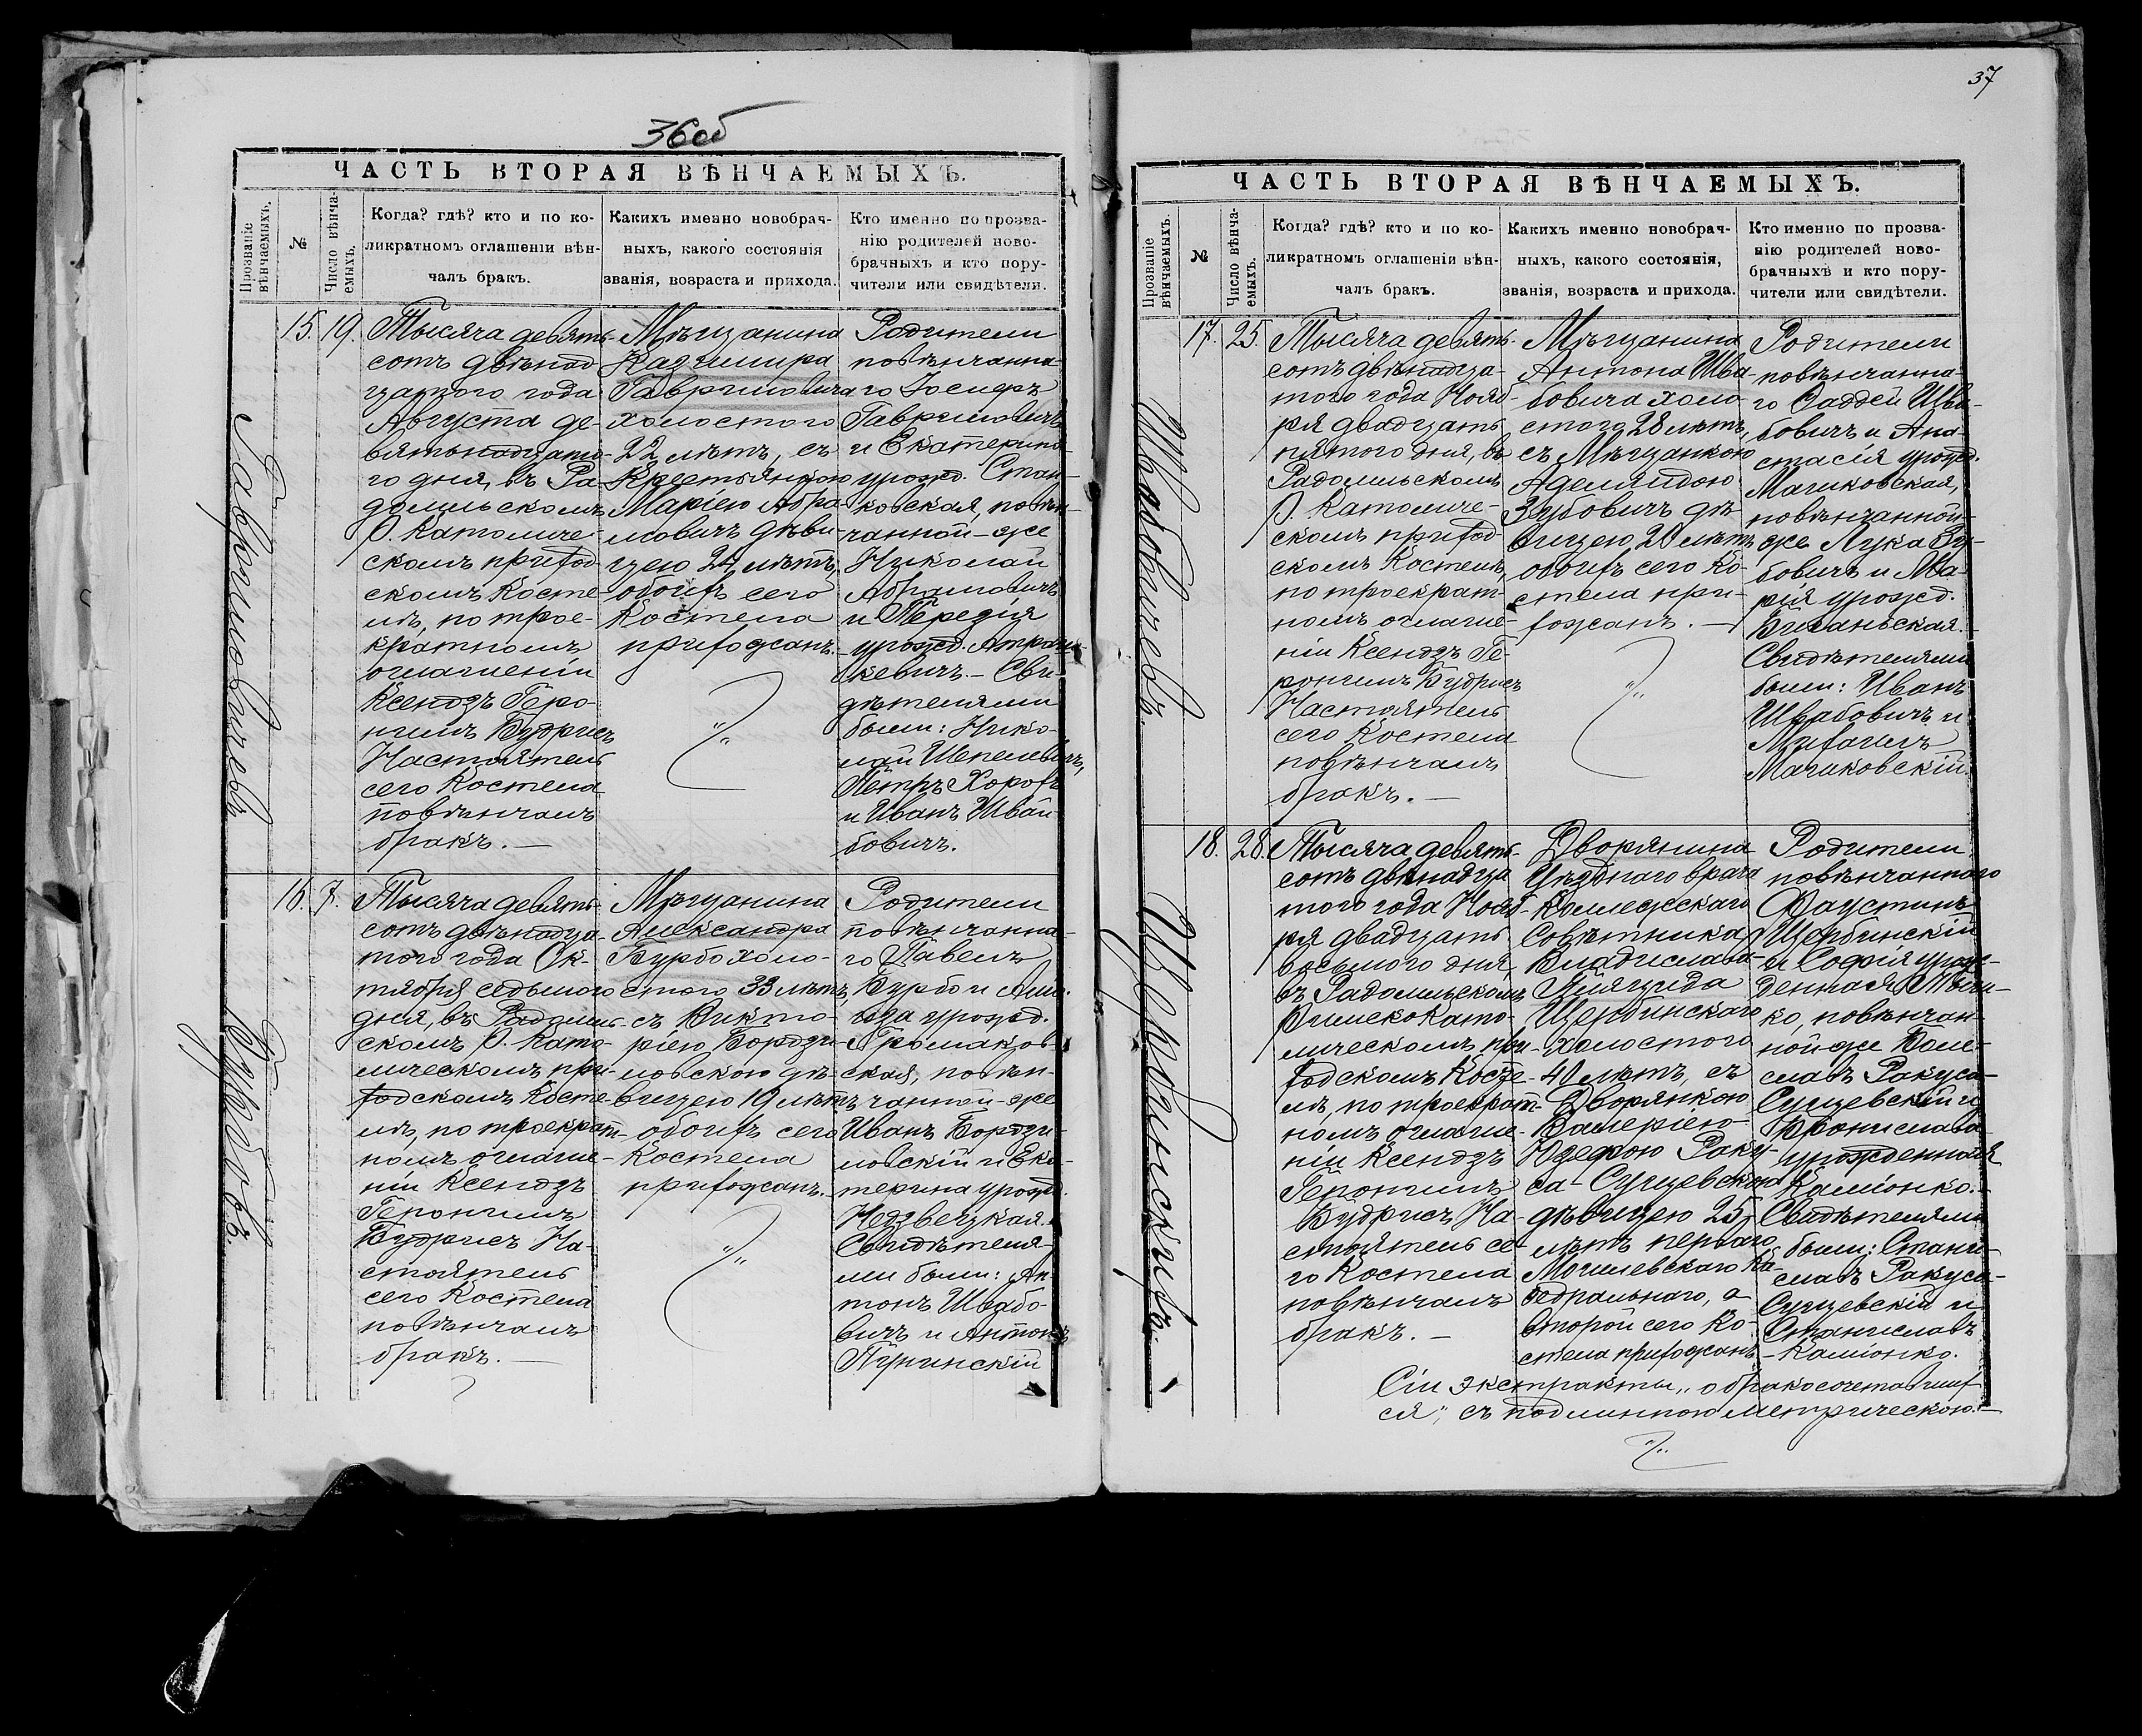 36об
ЧАСТЬ ВТОРАЯ ВѢНЧАЕМЫХЪ.
Прозваніе вѣнчаемыхъ.
№
Число вѣнчаемыхъ.
Когда? гдѣ? кто и по ко-
ликратномъ оглашеніи вѣн-
чалъ бракъ.
Какихъ именно новобрач-
ныхъ, какого состоянія
званія, возраста и прихода.
Кто именно по прозва-
нію родителей ново-
брачныхъ и кто пору-
чители или свидѣтели.
Гавриловичевъ
15.
19.
Тысяча девять-
сотъ двѣнад-
цатого года
Августа де-
вятьнадцато-
го дня, въ Ра-
домльскомъ
Р. Католиче-
скомъ приход-
скомъ Косте-
лѣ, по трое-
кратномъ
оглашеніи
Ксендзъ Геро-
нимъ Будрисъ
Настоятель
сего Костела
повѣнчалъ
бракъ. —
Мѣщанина
Казимира
Гавриловича
холостого
22 лѣтъ, съ
Крестьянкою
Маріею Абра-
мовичъ дѣви-
цею 24 лѣтъ,
обоихъ сего
Костела
прихожанъ. —
Родители
повѣнчанна-
го Іосифъ
Гавриловичъ
и Екатерина
урожд. Стан-
ковская, повѣн-
чанной-же
Николай
Абрамовичъ
и Терезія
урожд. Атраш-
кевичъ. — Сви-
дѣтелями
были: Нико-
лай Шепелевичъ,
Петръ Хорохъ
и Иванъ Швай-
бовичъ.
Бурбовъ.
16.
7.
Тысяча девять-
сотъ двѣнадца-
того года Ок-
тября седьмого
дня, въ Радомль-
скомъ Р. Като-
лическомъ при-
ходскомъ Косте-
лѣ, по троекрат-
номъ оглаше-
ніи Ксендзъ
Геронимъ
Будрисъ На-
стоятель
сего Костела
повѣнчалъ
бракъ. —
Мѣщанина
Александра
Бурбо холо-
стого 33 лѣтъ,
съ Викто-
ріею Бордзи-
ловскою дѣ-
вицею 19 лѣтъ
обоихъ сего
Костела
прихожанъ. —
Родители
повѣнчанна-
го Павелъ
Бурбо и
урожд.
ская, повѣн-
чанной-же
Иванъ Бордзи-
ловскій и Ека-
терина урожд.
Недзвецкая.
Свидѣтеля-
ми были: Ан-
тонъ Швабо-
вичъ и Антонъ
37
ЧАСТЬ ВТОРАЯ ВѢНЧАЕМЫХЪ.
Прозваніе вѣнчаемыхъ.
№
Число вѣнчаемыхъ.
Когда? гдѣ? кто и по ко-
ликратномъ оглашеніи вѣн-
чалъ бракъ.
Какихъ именно новобрач-
ныхъ, какого состоянія,
званія, возраста и прихода.
Кто именно по прозва-
нію родителей ново-
брачныхъ и кто пору-
чители или свидѣтели.
Швабовичевъ.
17.
25.
Тысяча девять-
сотъ двѣнадца-
того года Нояб-
ря двадцать
пятого дня, въ
Радомльскомъ
Р. Католиче-
скомъ приход-
скомъ Костелѣ,
по троекрат-
номъ оглаше-
ніи Ксендзъ Ге-
ронимъ Будрисъ
Настоятель
сего Костела
повѣнчалъ
бракъ. —
Мѣщанина
Антона Шва-
бовича холо-
стого 28 лѣтъ,
съ Мѣщанкою
Аделяидою
Зубовичъ дѣ-
вицею 20 лѣтъ
обоихъ сего Ко-
стела при-
хожанъ. —
Родители
повѣнчанна-
го Фаддей Шва-
бовичъ и Ана-
стасія урожд.
Мачиковская,
повѣнчанной-
же Лука Зу-
бовичъ и Ма-
рія урожд.
Свидѣтелями
были: Иванъ
Швабовичъ и
Михаилъ
Мачиковскій.
Щербинскихъ.
18.
28.
Тысяча девять-
сотъ двѣнадца-
того года Нояб-
ря двадцать
восьмого дня
въ Радомльскомъ
Римско-Като-
лическомъ при-
ходскомъ Косте-
лѣ, по троекрат-
номъ оглаше-
ніи Ксендзъ
Геронимъ
Будрисъ На-
стоятель се-
го Костела
повѣнчалъ
бракъ. —
Дворянина
Уѣзднаго врача
Коллежскаго
Совѣтника
Владислава-
Щербинскаго
холостого
40 лѣтъ, съ
Дворянкою
Валеріею-
Юзефою Раку-
са-Сущевскою
дѣвицею 25
лѣтъ перваго
Могилевскаго Ка-
ѳедральнаго, а
второй сего Ко-
стела прихожанъ.
Родители
повѣнчаннаго
Фаустинъ
Щербинскій
и Софія урож-
денная
ко, повѣнчан-
ной-же Боле-
славъ Ракуса-
Сущевскій и
Бронислава
урожденная
Каліонко. —
Свидѣтелями
были: Стани-
славъ Ракуса-
Сущевскій и
Станиславъ
Каліонко.
Сіи экстракты „о бракосочетавших-
ся“, съ подлинною метрическою —